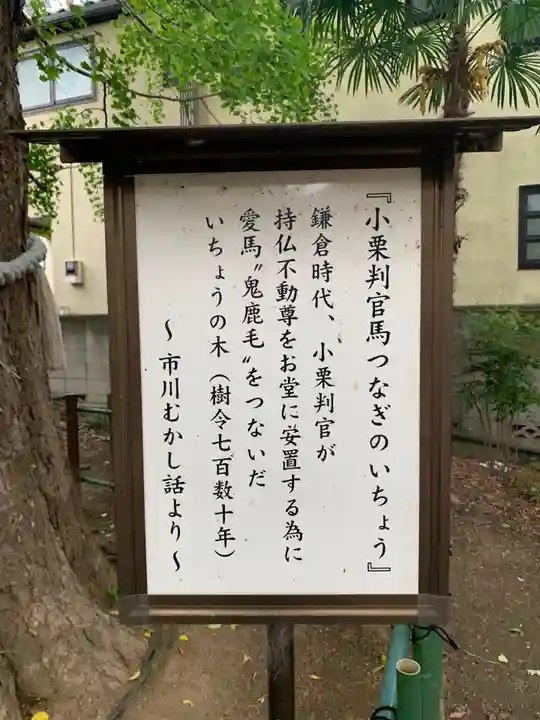 『小栗判官馬つなぎのいちょう』
鎌倉時代、小栗判官が
持仏不動尊をお堂に安置する為に
愛馬〝鬼鹿毛〟をつないだ
いちょうの木（樹令七百数十年）
～市川むかし話より～